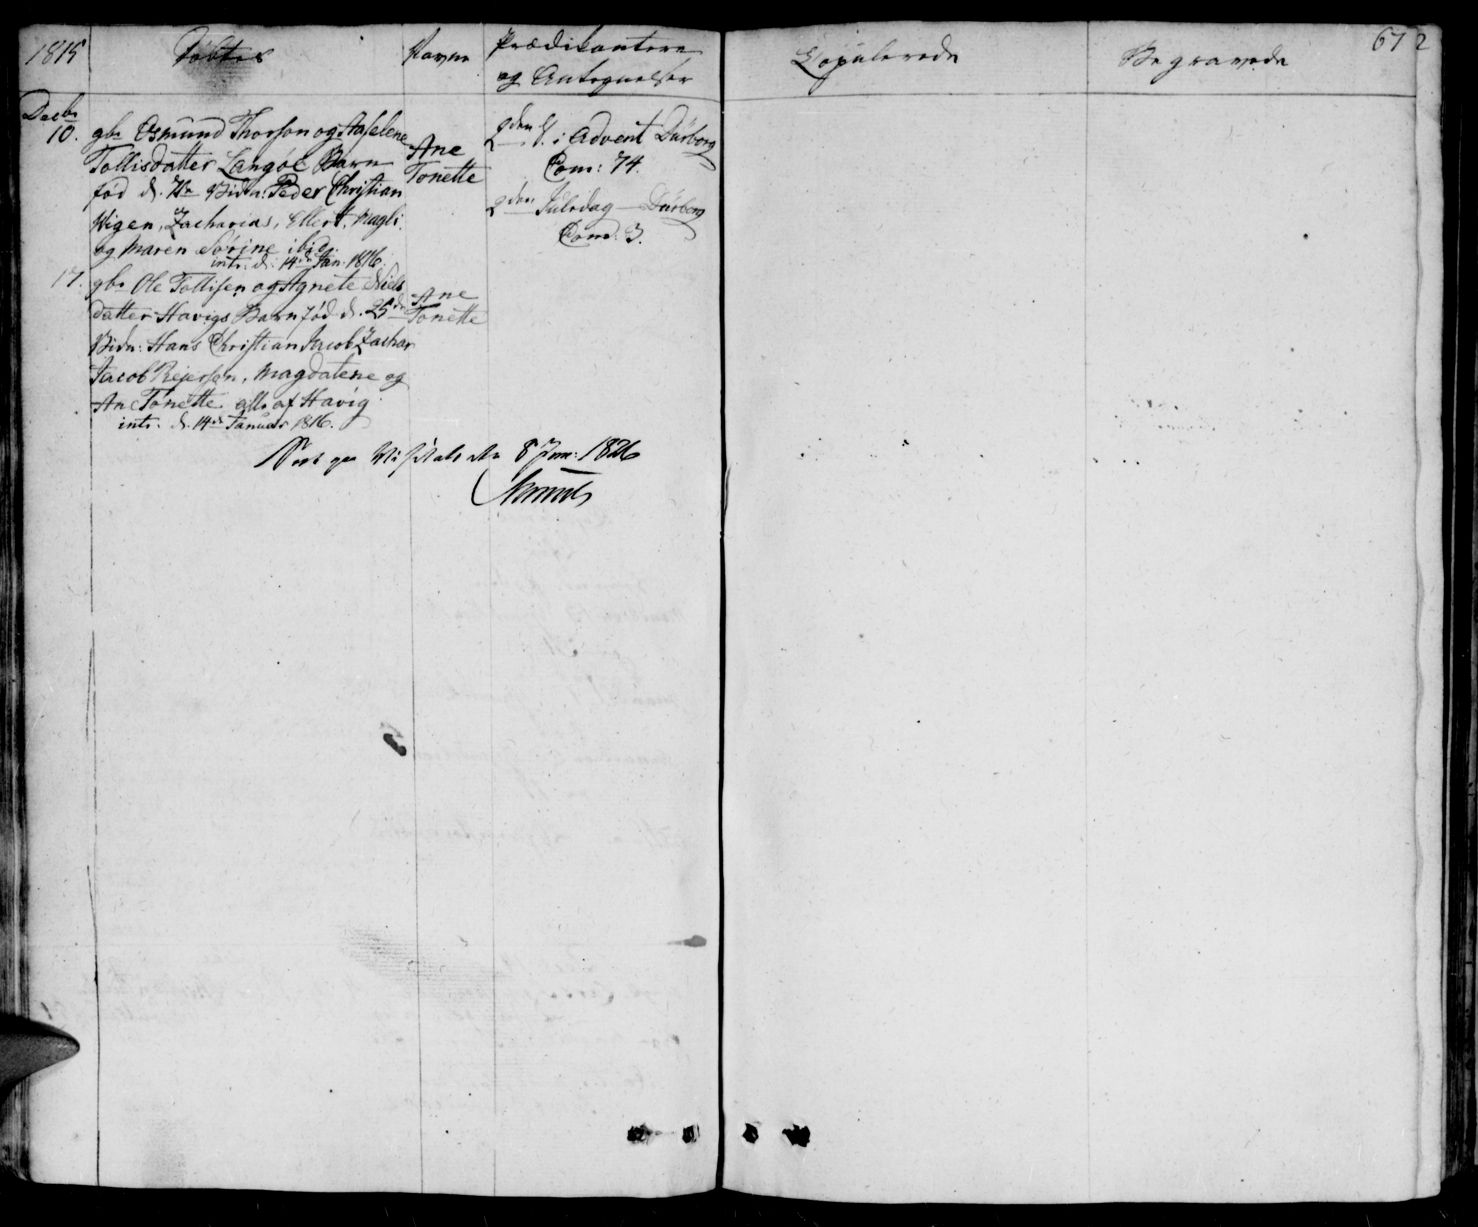 1815
Døbte
Navne
Prædikantere
og Antegnelser
Decbr
10.
gbr Osmund Thorson og Aselene
Tollisdatter Langøe Barn
fød d. 7de Vidn: Peder Christian
Vigen, Zacharias, Ellert, Magli.
og Maren Sørine ibid.
intr: d: 14de Jan: 1816.
Ane
Tonette
2den S. i Advent Dürborg
Com: 74.
2den Juledag Dürborg
Com: 3.
17.
gbr Ole Tollisen og Agnete Niels
datter Havigs Barn fød d. 25de
Vidn: Hans Christian Jacob Zachar
Jacob Rejerson, Magdalene og
Ane Tonette alle af Havig
intr. d. 14de Januar 1816.
Ane
Tonette
paa Visitats den 8 Jun: 1826
Copulerede
Begravede
672